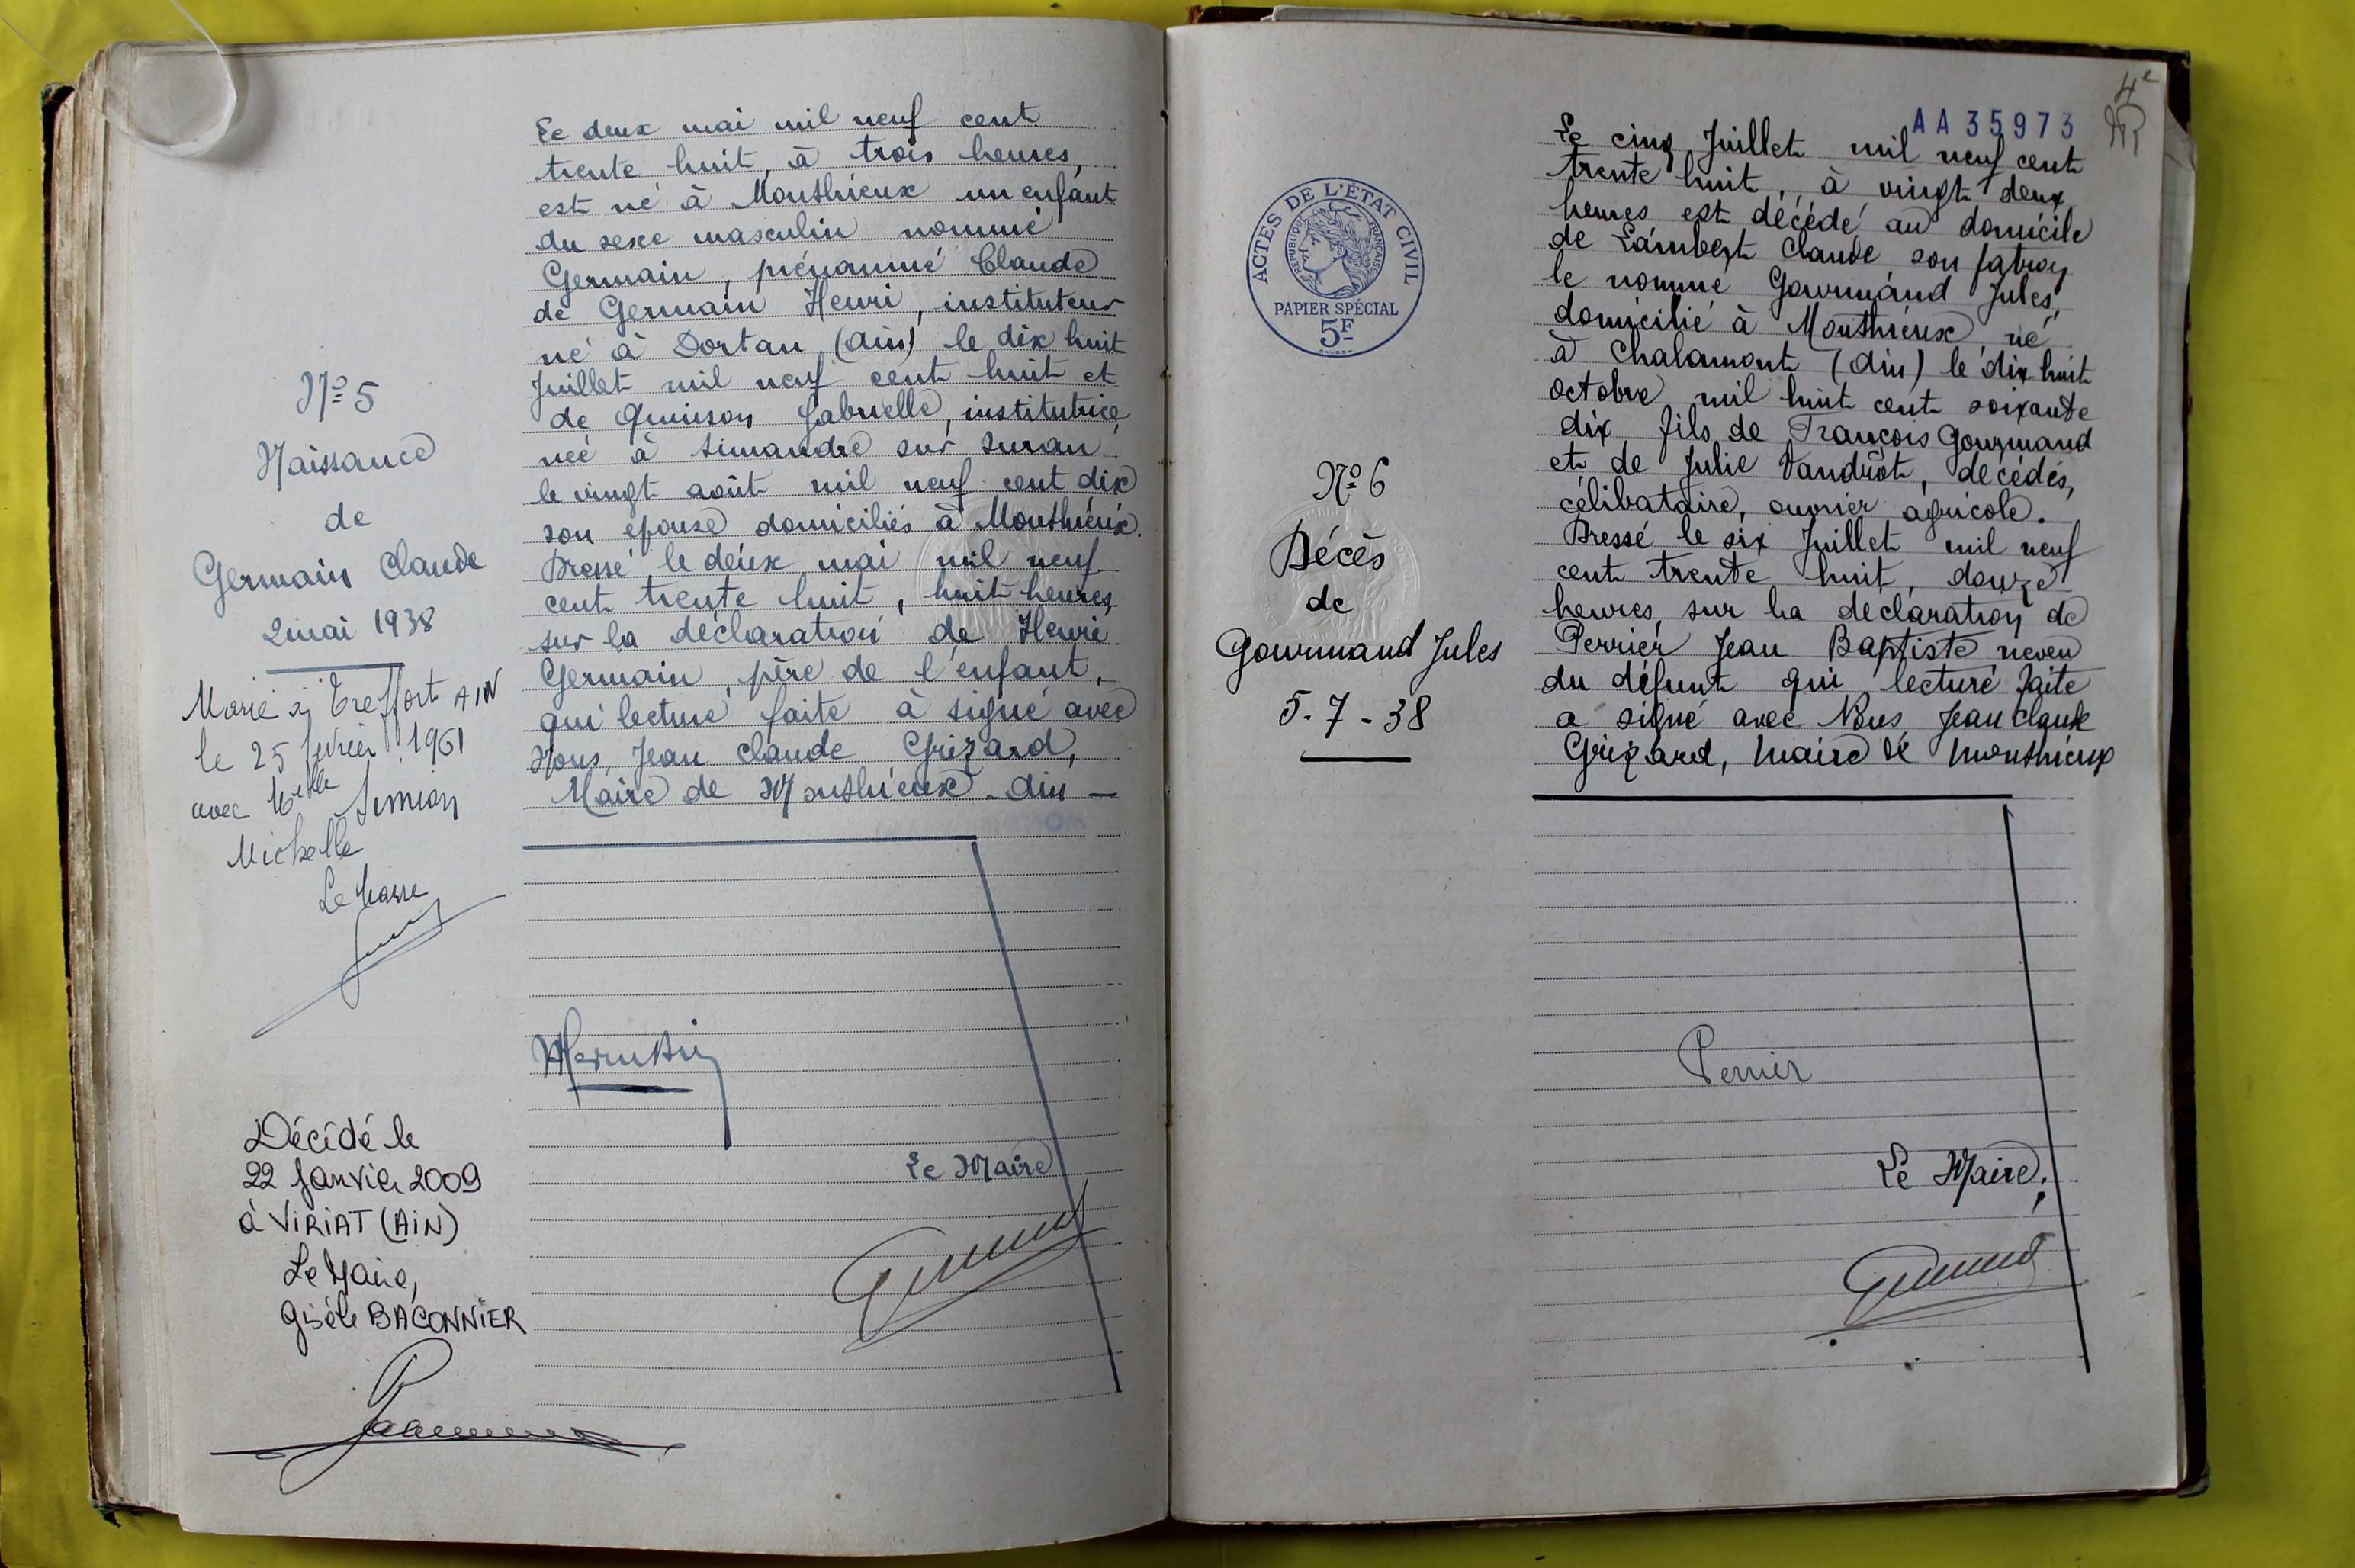 Le deux mai mil neuf cent
trente huit, à trois heures,
est né à Monthieux un enfant
du sexe masculin nommé
Germain, prénommé Claude
de Germain Henri, instituteur
né à Dortan (Ain) le dix huit
Juillet mil neuf cent huit et
de Quinson Gabrielle, institutrice,
née à Simandre sur Suran,
le vingt août mil neuf cent dix
son épouse domiciliés à Monthieux.
Dressé le deux mai mil neuf
cent trente huit, huit heures,
sur la déclaration de Henri
Germain, père de l'enfant,
qui lecture faite à signé avec
Nous, Jean Claude Grizard,
Maire de Monthieux - Ain -
Le Maire
N° 5
Naissance
de
Germain Claude
2 mai 1938
Marié à Treffort AIN
le 25 février 1961
avec Melle Simion
Michelle
Le Maire
Décédé le
22 Janvier 2009
à VIRIAT (AIN)
Le Maire,
Gisèle BACONNIER
4e
AA 35973
ACTES DE L'ÉTAT CIVIL
RÉPUBLIQUE FRANÇAISE
PAPIER SPÉCIAL
5F
N° 6
Décès
de
Gourmand Jules
5-7-38
Le cinq Juillet mil neuf cent
trente huit, à vingt deux
heures est décédé au domicile
de Lambert Claude son patron
le nommé Gourmand Jules,
domicilié à Monthieux, né
à Chalamont (Ain) le dix huit
octobre mil huit cent soixante
dix, fils de François Gourmand
et de Julie Vandrot, décédés,
célibataire, ouvrier agricole.
Dressé le six Juillet mil neuf
cent trente huit, douze
heures, sur la déclaration de
Perrier Jean Baptiste neveu
du défunt qui lecture faite
a signé avec Nous Jean Claude
Grizard, Maire de Monthieux
Perrier
Le Maire,